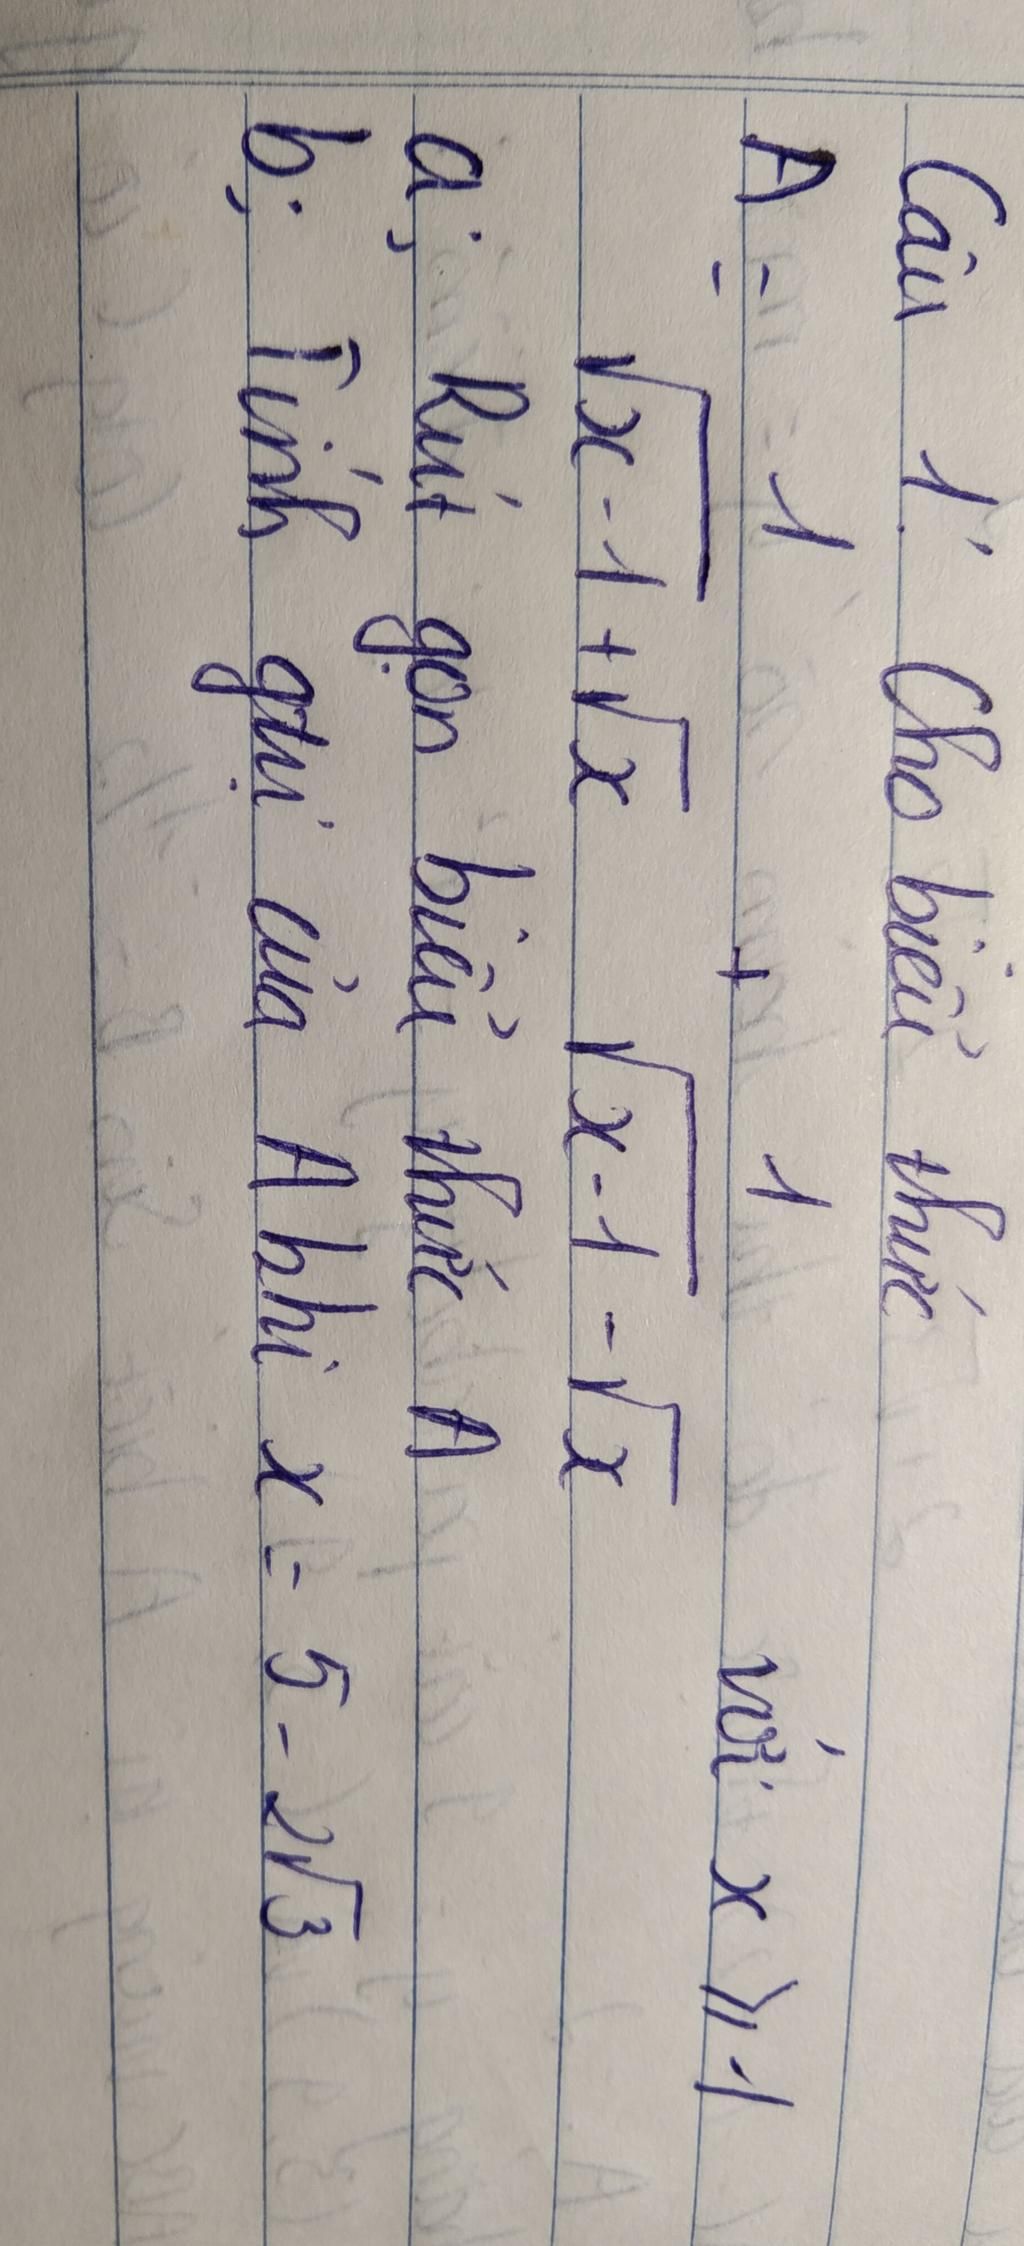 Câu 1: Cho biểu thức
A = 1 + 1 với x ⩾ 1
√x-1 + √x √x-1 - √x
a; Rút gọn biểu thức A
b; Tính gtrị của A khi x = 5 - 2√3